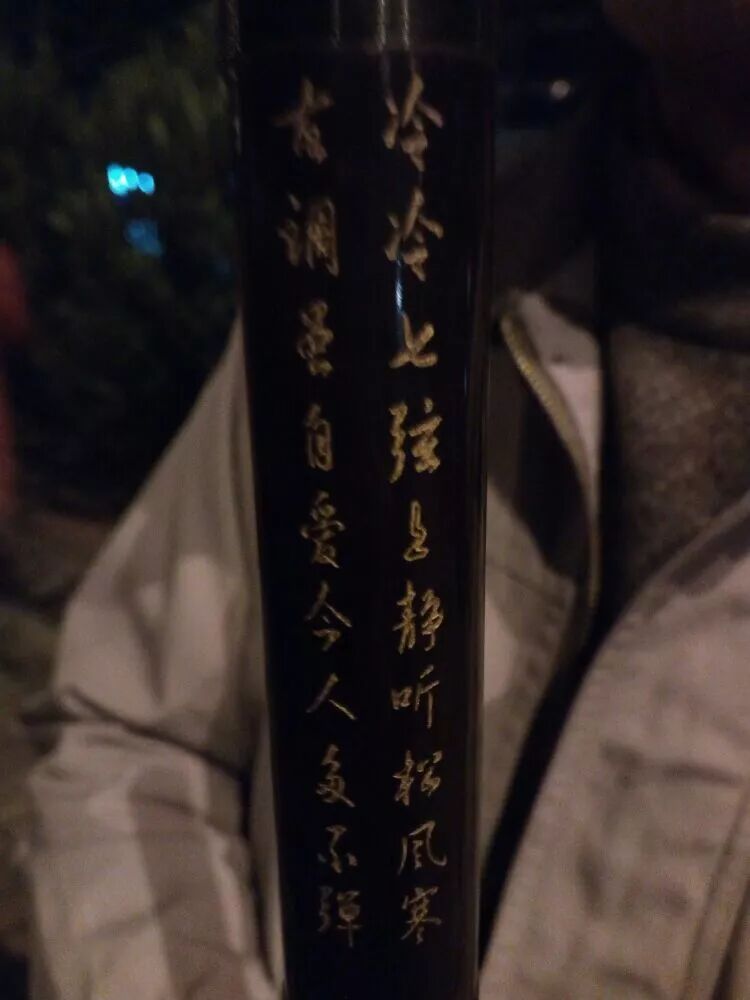 冷冷七弦上静听松风寒
古调虽自爱今人多不弹